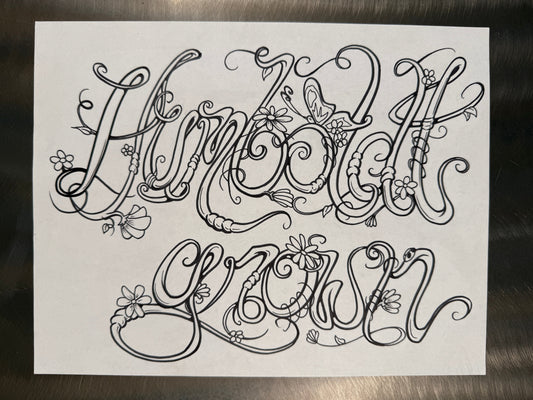 Humboldt
grown